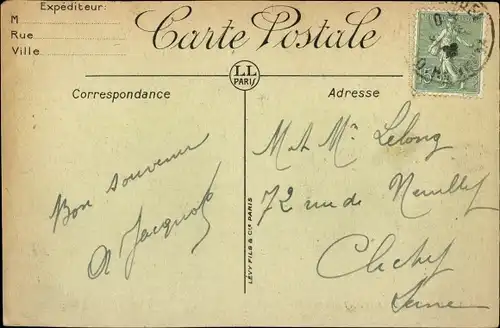 Expéditeur:
M
Rue
Ville
Carte Postale
LL
PARIS
Correspondance
Adresse
Bon souvenir
A Jacquot
LÉVY FILS & Cie PARIS
M et Me Lelong
72 rue de Neuilly
Clichy
Seine